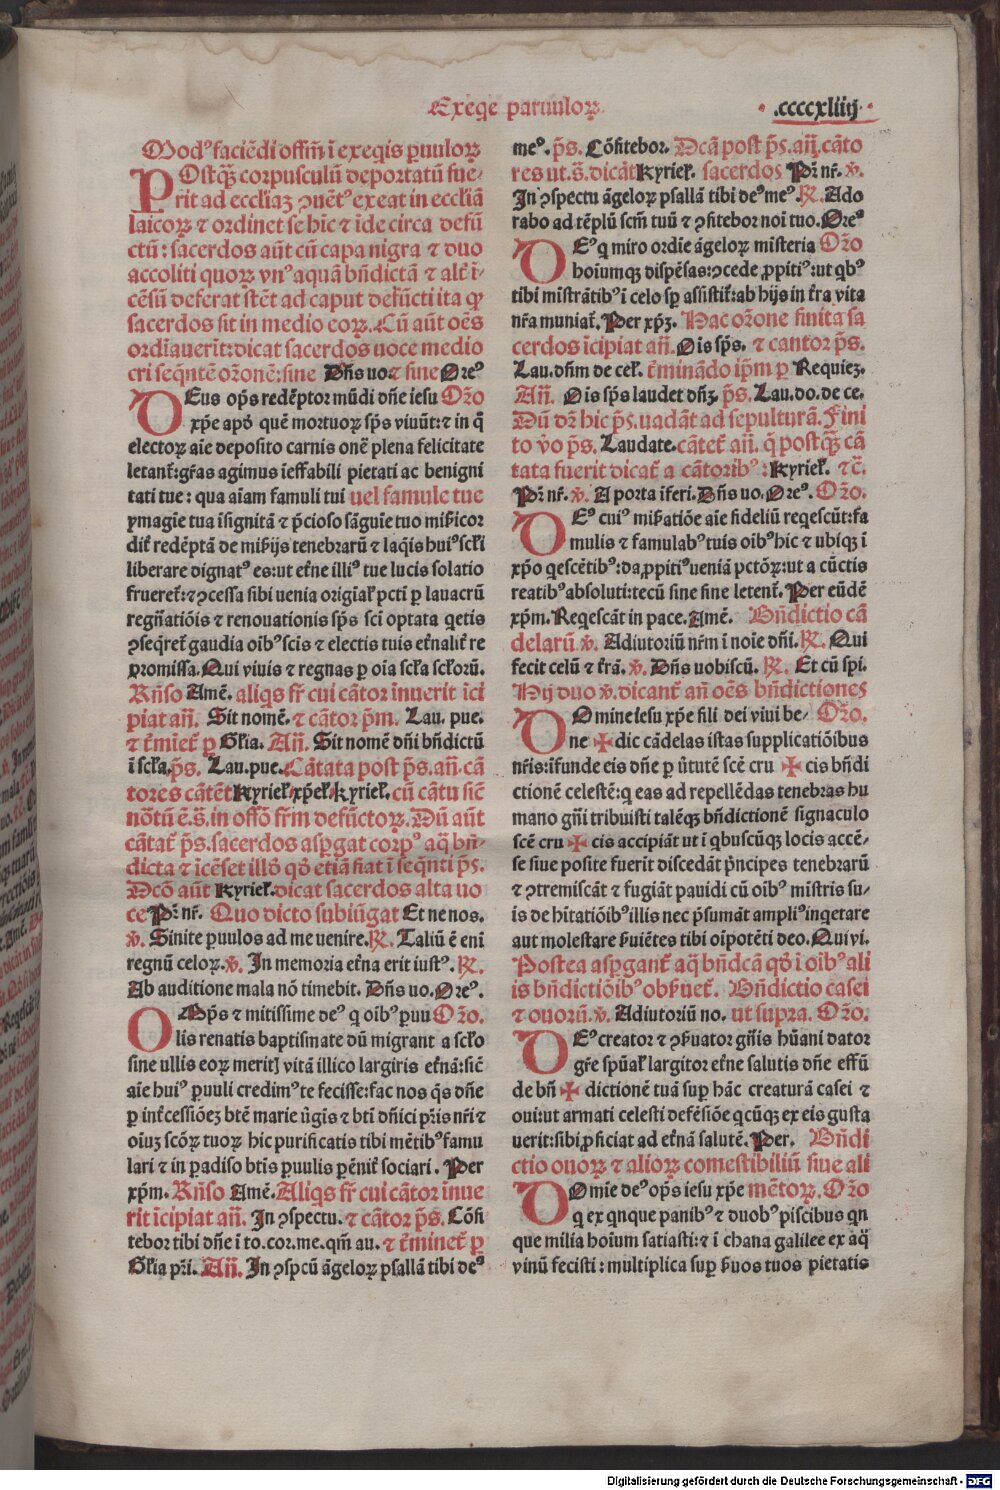 Exeqe paruuloꝝ
.ccccxliiij
Modꝰ faciẽdi offm̃ ĩ exeqis ꝑuuloꝝ
POstqꝫ corpusculũ deportatũ fue-
rit ad eccliaꝫ ↄuẽtꝰ exeat in eccliã
laicoꝝ ⁊ ordinet se hic ⁊ ĩde circa defũ
ctũ: sacerdos aũt cũ capa nigra ⁊ duo
accoliti quoꝝ vnꝰ aquã bñdictã ⁊ alt̃ ĩ-
cẽsũ deferat stẽt ad caput defũcti ita ꝙ
sacerdos sit in medio eoꝝ. Cũ aũt oẽs
ordĩauerĩt: dicat sacerdos uoce medio
cri seq̃ntẽ oꝛonẽ: sine Dñs uo. ⁊ sine Oreꝰ
DEus op̃s redẽptor mũdi dñe iesu Oꝛõ
xp̃e apd̛ quẽ mortuoꝝ sp̃s viuũt: ⁊ in q̃
electoꝝ aĩe deposito carnis onẽ plena felicitate
letant̃: gr̃as agimus ĩeffabili pietati ac benigni
tati tue: qua aĩam famuli tui uel famule tue
ꝑmagĩe tua ĩsignitã ⁊ p̃cioso sãguĩe tuo mis̃icor
dit̃ redẽptã de mis̃ijs tenebrarũ ⁊ laq̃is huiꝰ sc̃li
liberare dignatꝰ es: ut et̃ne illiꝰ tue lucis solatio
frueret̃: ⁊ ↄcessa sibi uenia origĩal̃ pcti ꝑ lauacrũ
regñatiõis ⁊ renouationis sp̃s sc̃i optata q̃etis
ↄseq̃ret̃ gaudia oibꝰ sc̃is ⁊ electis tuis et̃nalit̃ re
ꝓmissa. Qui viuis ⁊ regnas ꝑ oĩa sc̃la sc̃lorũ.
Rñso Amẽ. aliqs fr̃ cui cãtor ĩnuerit ĩci
piat añ. Sit nomẽ. ⁊ cãtor p̃m. Lau. pue.
⁊ t̃miet̃ ꝑ Gl̃ia. Añ. Sit nomẽ dñi bñdictũ
ĩ sc̃la. p̃s. Lau. pue. Cãtata post p̃s. añ. cã
tores cãtẽt Kyriel̃. xp̃el̃. kyriel̃. cũ cãtu siẽ
nõtũ ẽ. s̃. in offõ fr̃m defũctoꝝ. Dũ aũt
cãtat̃ p̃s. sacerdos asꝑgat corpꝰ aq̃ bñ-
dicta ⁊ ĩcẽset illd̛ qd̛ etiã fiat ĩ seq̃nti p̃s.
Dcõ aũt Kyriel̃. dicat sacerdos alta uo
ce Pr̃ nr̃. Quo dicto subiũgat Et ne nos.
℣. Sinite ꝑuulos ad me uenire. ℟. Taliũ ẽ enĩ
regnũ celoꝝ. ℣. In memoria et̃na erit iustꝰ. ℟.
Ab auditione mala nõ timebit. Dñs uo. Oreꝰ.
OMp̃s ⁊ mitissime deꝰ q oibꝰ ꝑuu Oꝛõ.
lis renatis baptismate dũ migrant a sc̃lo
sine ullis eoꝝ merit̃ vitã illico largiris et̃nã: siẽ
aĩe huiꝰ ꝑuuli credimꝰ te fecisse: fac nos q̃s dñe
ꝑ int̃cessiõeꝫ btẽ marie ũgĩs ⁊ bt̃i dñici pr̃is nr̃i ⁊
oĩuꝫ sc̃oꝝ tuoꝝ hic purificatis tibi mẽtibꝰ famu
lari ⁊ in ꝑadiso bt̃is ꝑuulis ꝑẽnit̃ sociari. Per
xp̃m. Rñso Amẽ. Aliqs fr̃ cui cãtor ĩnue
rit ĩcipiat añ. In ↄspectu. ⁊ cãtor p̃s. Cõfi
tebor tibi dñe ĩ to. cor. me. qm̃ au. ⁊ t̃minet̃ ꝑ
Gl̃ia pr̃i. Añ. In ↄspcũ ãgeloꝝ psallã tibi deꝰ
meꝰ. p̃s. Cõfitebor. Dcã post p̃s. añ. cãto
res ut. s̃. dicãt Kyriel̃. sacerdos Pr̃ nr̃. ℣.
In ↄspectu ãgeloꝝ psallã tibi deꝰ meꝰ. ℟. Ado
rabo ad tẽplũ scm̃ tuũ ⁊ ↄfitebor noĩ tuo. Oreꝰ
DEꝰ q miro ordĩe ãgeloꝝ misteria Oꝛõ
hoĩumqꝫ dispẽsas: ↄcede ꝓpitiꝰ: ut qbꝰ
tibi mistrãtibꝰ ĩ celo sꝑ assistit̃: ab hijs in t̃ra vita
nr̃a muniat̃. Per xp̃ꝫ. Hac oꝛone finita sa
cerdos ĩcipiat añ. Oĩs sp̃s. ⁊ cantor p̃s.
Lau. dñm de cel̃. t̃minãdo ip̃m ꝑ Requieꝫ.
Añ. Oĩs sp̃s laudet dñꝫ. p̃s. Lau. do. de ce.
Dũ dr̃ hic p̃s. uadãt ad sepulturã. Fini
to v̓o p̃s. Laudate. cãtet̃ añ. q̃ postqꝫ cã
tata fuerit dicat̃ a cãtoribꝰ: Kyriel̃. ⁊c̃.
Pr̃ nr̃. ℣. A porta ĩferi. Dñs uo. Oreꝰ. Oꝛõ.
DEꝰ cuiꝰ mis̃atiõe aĩe fideliũ reqescũt: fa
mulis ⁊ famulabꝰ tuis oibꝰ hic ⁊ ubiqꝫ ĩ
xp̃o qescẽtibꝰ: da ꝓpitiꝰ ueniã pctõꝝ: ut a cũctis
reatibꝰ absoluti: tecũ sine fine letent̃. Per eũdẽ
xp̃m. Reqescãt in pace. Amẽ. Bñdictio cã
delarũ ℣. Adiutoriũ nr̃m ĩ noĩe dñi. ℟. Qui
fecit celũ ⁊ t̃rã. ℣. Dñs uobiscũ. ℟. Et cũ sp̃i.
Hij duo ℣. dicant̃ añ oẽs bñdictiones
DOmine iesu xp̃e fili dei viui be- Oꝛõ.
ne ✠ dic cãdelas istas supplicatiõibus
nr̃is: ĩfunde eis dñe ꝑ ũtutẽ scẽ cru ✠ cis bñdi
ctionẽ celestẽ: q eas ad repellẽdas tenebras hu
mano gñi tribuisti: talẽqꝫ bñdictionẽ signaculo
scẽ cru ✠ cis accipiãt ut ĩ qbuscũqꝫ locis accẽ-
se siue posite fuerit discedãt p̃ncipes tenebrarũ
⁊ ↄtremiscãt ⁊ fugiãt pauidi cũ oibꝰ mistris su-
is de hĩtatiõibꝰ illis nec p̃sumãt ampliꝰ inqetare
aut molestare s̃uiẽtes tibi oĩpotẽti deo. Qui vi.
Postea asꝑgant̃ aq̃ bñdcã qd̛ ĩ oibꝰ ali
is bñdictiõibꝰ obs̃uet̃. Bñdictio casei
⁊ ouorũ. ℣. Adiutoriũ no. ut supra. Oꝛõ.
DEꝰ creator ⁊ ↄs̃uator gñis hũani dator
gr̃e sp̃ual̃ largitor et̃ne salutis dñe effũ
de bñ ✠ dictionẽ tuã suꝑ hãc creaturã casei ⁊
oui: ut armati celesti defẽsiõe qcũqꝫ ex eis gusta
uerit: sibi ꝓficiat ad et̃nã salutẽ. Per. Bñdi
ctio ouoꝝ ⁊ alioꝝ comestibiliũ siue ali
DOmĩe deꝰ op̃s iesu xp̃e mẽtoꝝ. Oꝛõ
q ex qnque panibꝰ ⁊ duobꝰ piscibus qn
que milia hoĩum satiasti: ⁊ ĩ chana galilee ex aq̃
vinũ fecisti: multiplica suꝑ s̃uos tuos pietatis
Digitalisierung gefördert durch die Deutsche Forschungsgemeinschaft - DFG